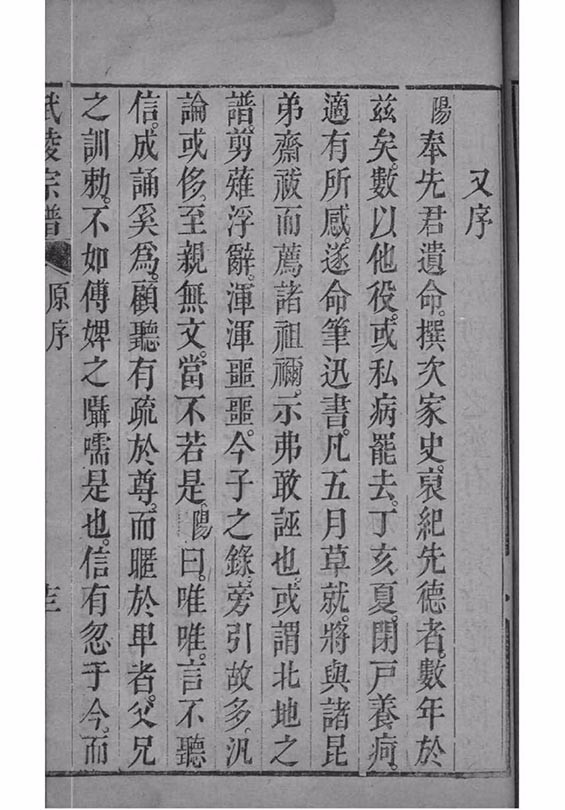 又序
陽奉先君遺命。撰次家史。裒紀先德者。數年於
茲矣。數以他役。或私病罷去。丁亥夏。閉戶養疴。
適有所感。遂命筆迅書。凡五月草就。將與諸昆
弟齋祓而薦諸祖禰。示弗敢誣也。或謂北地之
譜。剪薙浮辭。渾渾噩噩。今子之錄。旁引故多。汎
論或侈。至親無文。當不若是。陽曰。唯唯。言不聽
信。成誦奚為。顧聽有疏於尊。而暱於卑者。父兄
之訓勅。不如傅婢之囁嚅是也。信有忽于今。而
武陵宗譜 原序